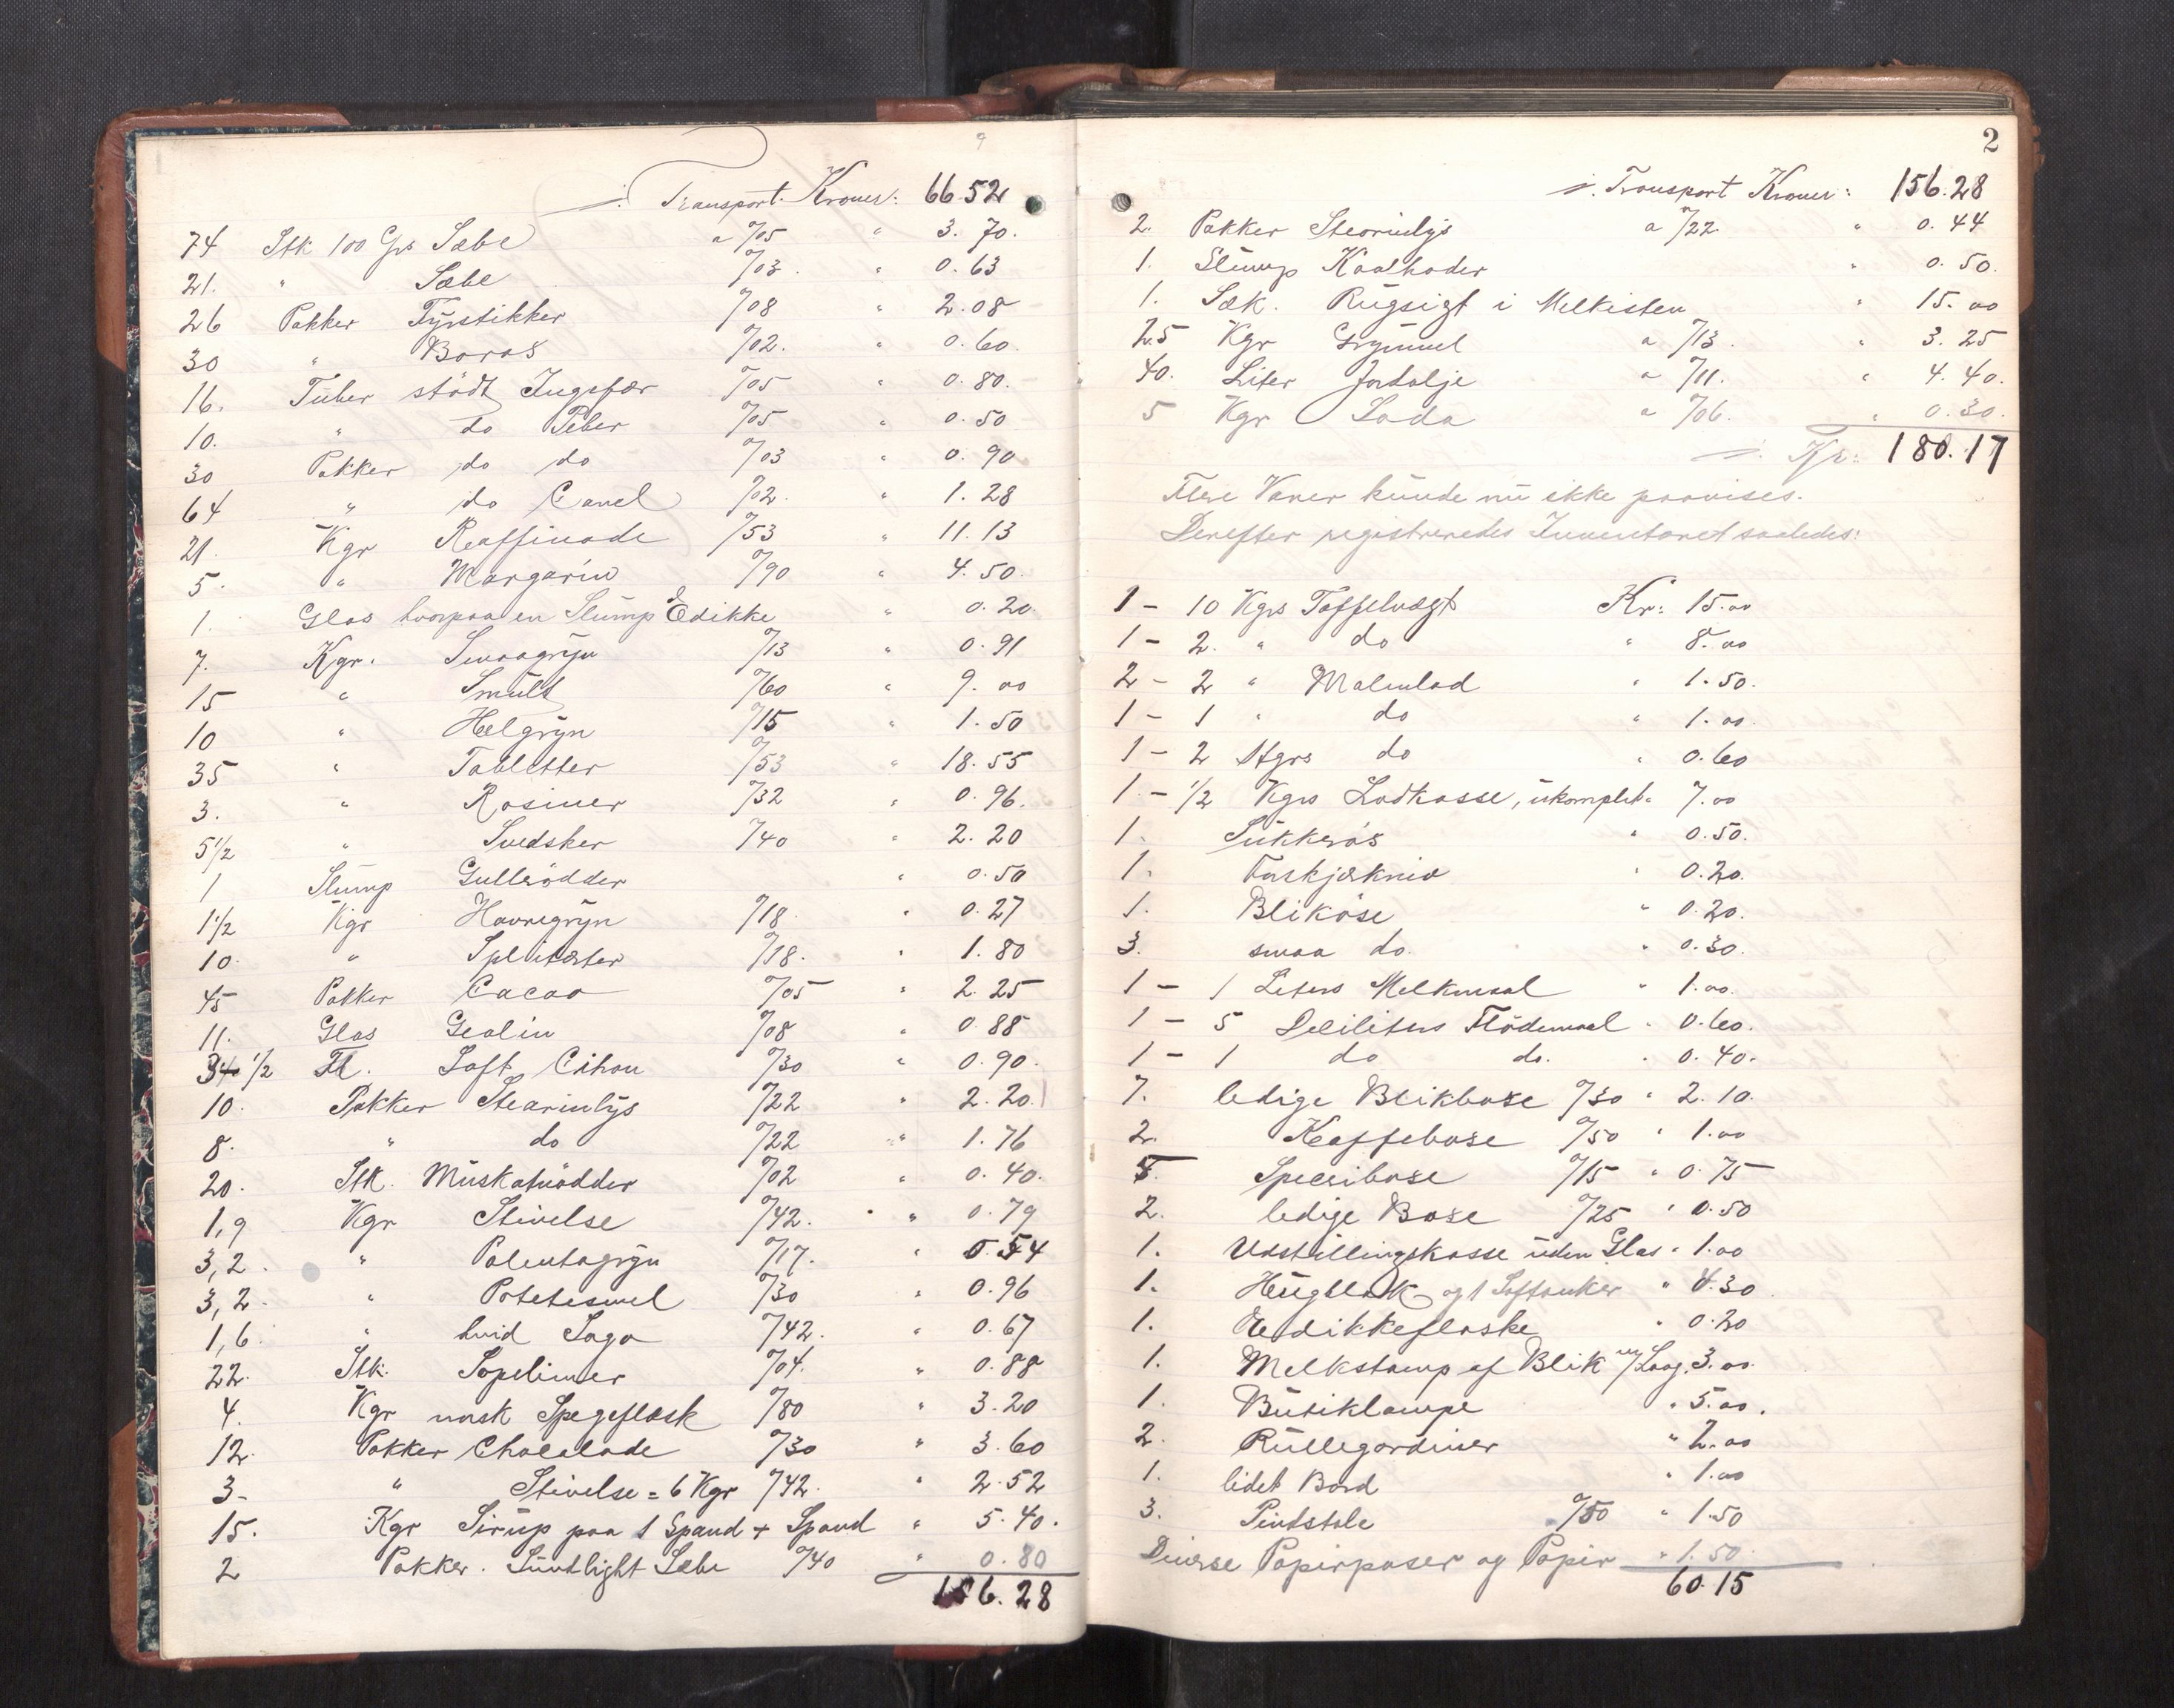 ./. Transport Kroner: 66.52
74 Stk 100 Grs Sæbe a %05 " 3.70.
21. " Sæbe %03 " 0.63
26 Pakker Fyrstikker %08 " 2.08
30 " Borax %02. " 0.60
16. Tuber stødt Ingefær %05 " 0.80.
10. " do Peber %05 " 0.50
30 Pakker do do %03 " 0.90
64 " do Canel %02. " 1.28
21. Kgr Raffinade %53 " 11.13
5. " Margarin %90 " 4.50.
1. Glas hvorpaa en Slump Edikke " 0.20
7. Kgr. Smaagryn %13 " 0.91
15 " Smult %60 " 9.00
10 " Helgryn %15 " 1.50
35 " Tabletter %53 " 18.55
3. " Rosiner %32 " 0.96.
5 1/2 " Svedsker %40 " 2.20
1 Slump Gullerødder " 0.50
1 1/2 Kgr Havregryn %18 " 0.27
10. " Splitærter %18. " 1.80
45 Pakker Cacao %05 " 2.25
11. Glas Geolin %08 " 0.88
3 1/2 Fl. Saft Citron %30 " 0.90.
10. Pakker Stearinlys %22 " 2.20.
8. " do %22 " 1.76
20. Stk. Muskatnødder %02 " 0.40.
1,9 Kgr Stivelse %42. " 0.79
3,2. " Polentagryn %17. " 0.54
3,2. " Potetesmel %30 " 0.96
1,6. " hvid Sago %42. " 0.67
22. Stk. Sopelimer %04. " 0.88
4. Kgr norsk Spegeflæsk %80 " 3.20
12. Pakker Chocolade %30 " 3.60
3- " Stivelse = 6 Kgr %42. " 2.52
15. Kgr Sirup paa 1 Spand + Spand " 5.40.
2 Pakker. Sunlight Sæbe %40 " 0.80
156.28
2
./. Transport Kroner: 156.28
2. Pakker Stearinlys a %22. " 0.44
1. Slump Kaalhoder " 0.50.
1. Sæk. Rugsigt i Melkisten " 15.00
25 Kgr Grynmel a %13. " 3.25
40. Liter Jordolje a %11. " 4.40.
5 Kgr Soda a %06. " 0.30.
./. Kr: 180.17
Flere Varer kunde nu ikke paavises.
Derefter registreredes Inventaret saaledes:
1 - 10 Kgrs Taffelvægt Kr: 15.00
1 - 2. " do " 8.00
2 - 2 " Malmlod " 1.50.
1 - 1 " do " 1.00.
1 - 2 Hgrs do " 0.60
1 - 1/2 Kgrs Lodkasse, ukomplet " 7.00
1. Sukkersax " 0.50.
1. Forskjærkniv " 0.20.
1. Blikøse " 0.20.
3. smaa do. " 0.30.
1 - 1 Liters Melkmaal " 1.00.
1 - 5 Deciliters Flødemaal " 0.60.
1 - 1 do do. " 0.40.
7. ledige Blikboxe %30 " 2.10.
2. Kaffeboxe %50 " 1.00
5. Specriboxe %15 " 0.75
2. ledige Boxe %25 " 0.50
1. Udstillingskasse uden Glas " 1.00
1. Hugblok og 1 Saftanker " 0.30
1. Edikkeflaske " 0.20
1. Melkstamp af Blik m/Laag. 3.00.
1. Butiklampe " 5.00.
2. Rullegardiner " 2.00
1. lidet Bord " 1.00
3. Pindstole %50 " 1.50
Diverse Papirposer og Papir " 1.50.
60.15